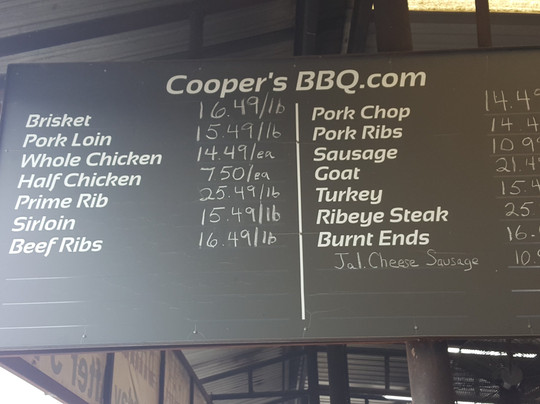 Cooper's BBQ.com
Brisket 16.49/lb
Pork Loin 15.49/lb
Whole Chicken 14.49/ea
Half Chicken 750/ea
Prime Rib 25.49/lb
Sirloin 15.49/lb
Beef Ribs 16.49/lb
Pork Chop 14.4
Pork Ribs 14.4
Sausage 10.9
Goat 21.4
Turkey 15.4
Ribeye Steak 25.
Burnt Ends 16.
Jal. Cheese Sausage 10.